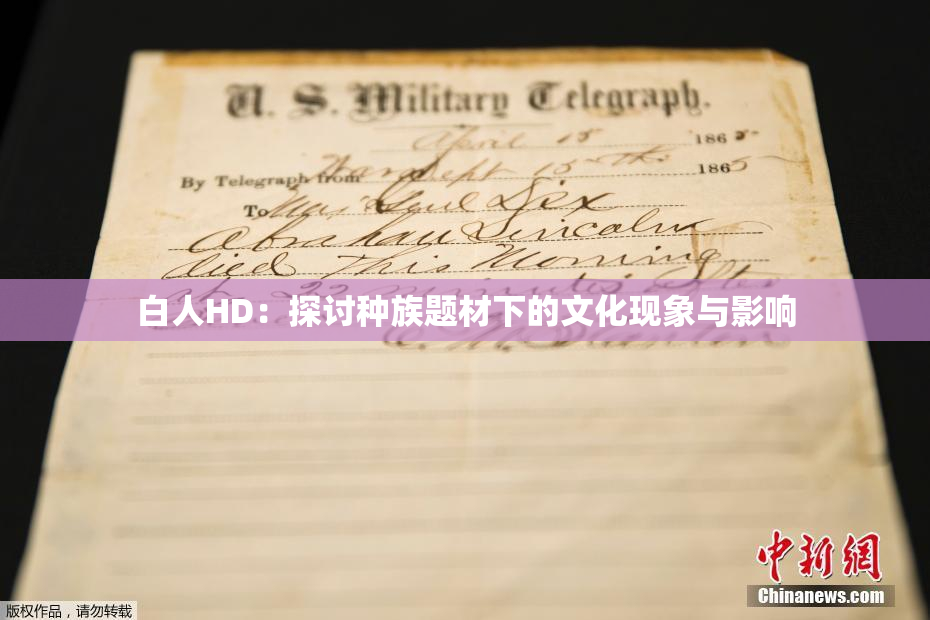 U. S. Military Telegraph.
April 15 1865
By Telegraph from War Dept 15th 1865
To Maj Genl Dix
Abraham Lincoln
died This Morning
at 22 minutes after
白人HD：探讨种族题材下的文化现象与影响
E. M. Stanton
中新网
Chinanews.com
版权作品，请勿转载